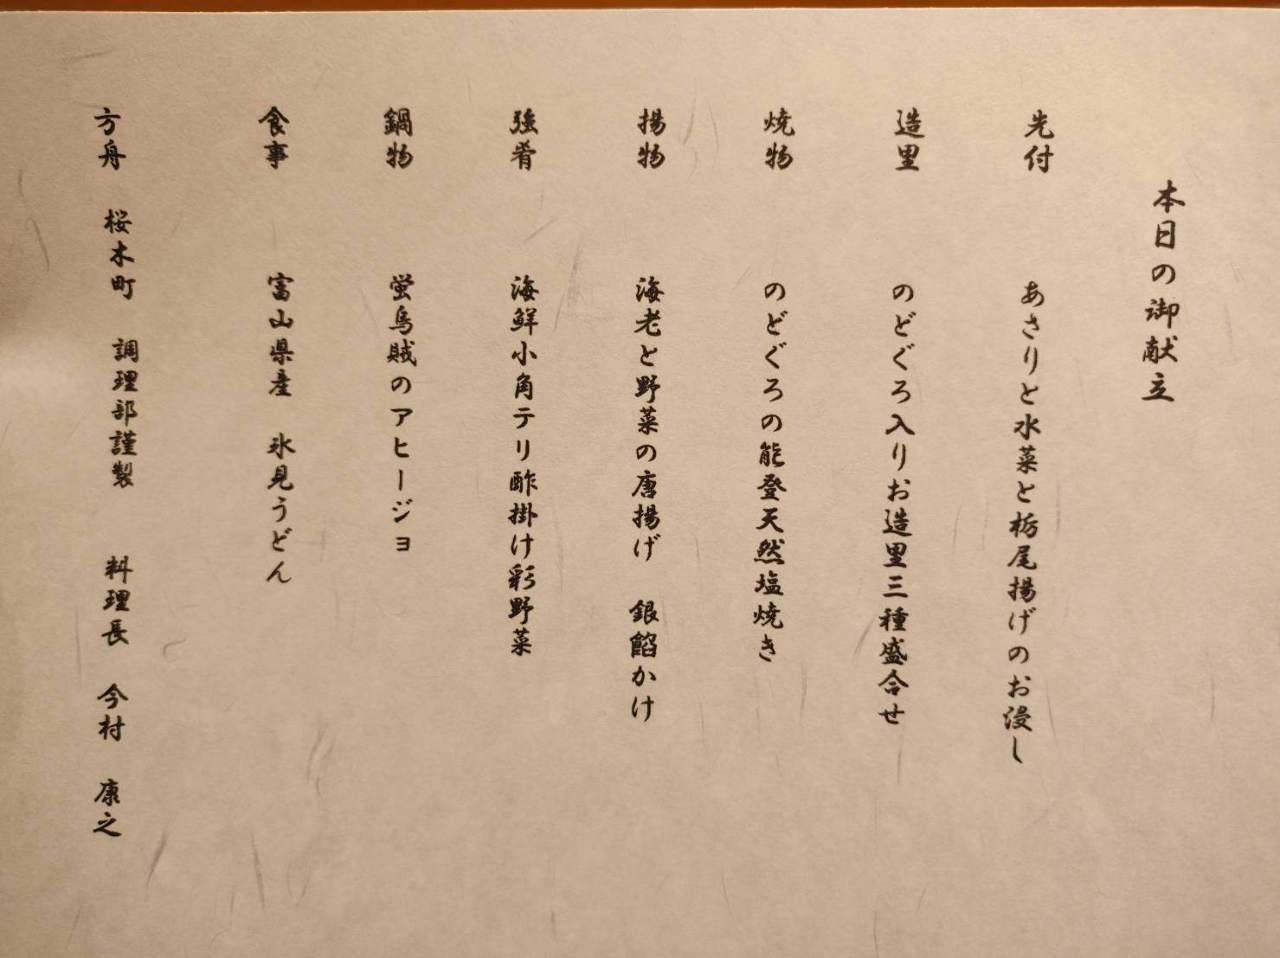 本日の御献立
先付 あさりと水菜と栃尾揚げのお浸し
造里 のどぐろ入りお造里三種盛合せ
焼物 のどぐろの能登天然塩焼き
揚物 海老と野菜の唐揚げ 銀餡かけ
強肴 海鮮小角テリ酢掛け彩野菜
鍋物 蛍烏賊のアヒージョ
食事 富山県産 氷見うどん
方舟 桜木町 調理部謹製 料理長 今村 康之